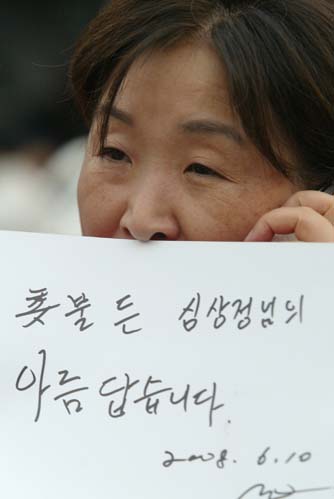 촛불 든 심상정님의
아름답습니다.
2008. 6. 10